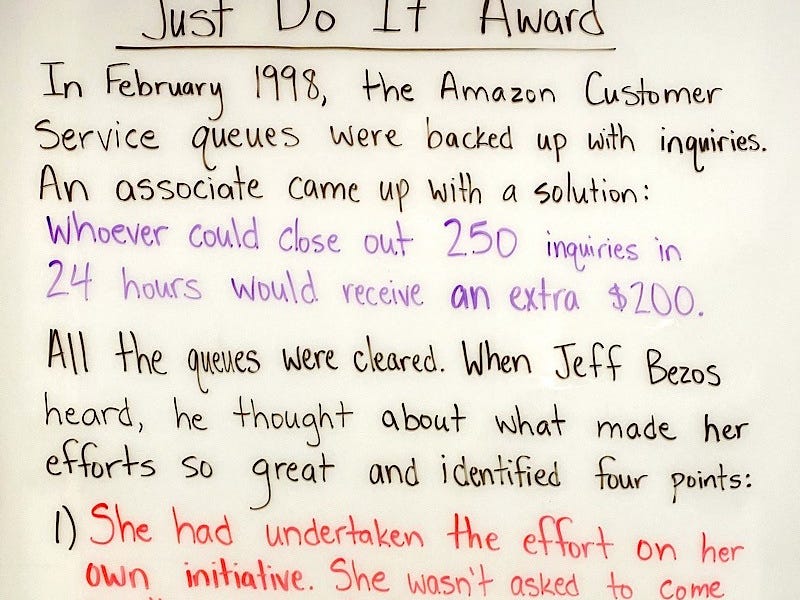 Just Do It Award
In February 1998, the Amazon Customer
Service queues were backed up with inquiries.
An associate came up with a solution:
Whoever could close out 250 inquiries in
24 hours would receive an extra $200.
All the queues were cleared. When Jeff Bezos
heard, he thought about what made her
efforts so great and identified four points:
1) She had undertaken the effort on her
own initiative. She wasn't asked to come